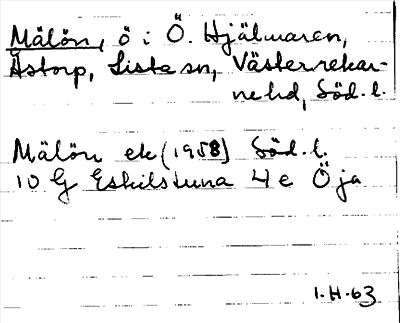 Mälön, ö i Ö. Hjälmaren,
Åstorp, Lista sn, Västerrekar-
ne hd, Söd. l.
Mälön ek (1958) Söd. l.
10 G Eskilstuna 4 e Öja
1.H.63